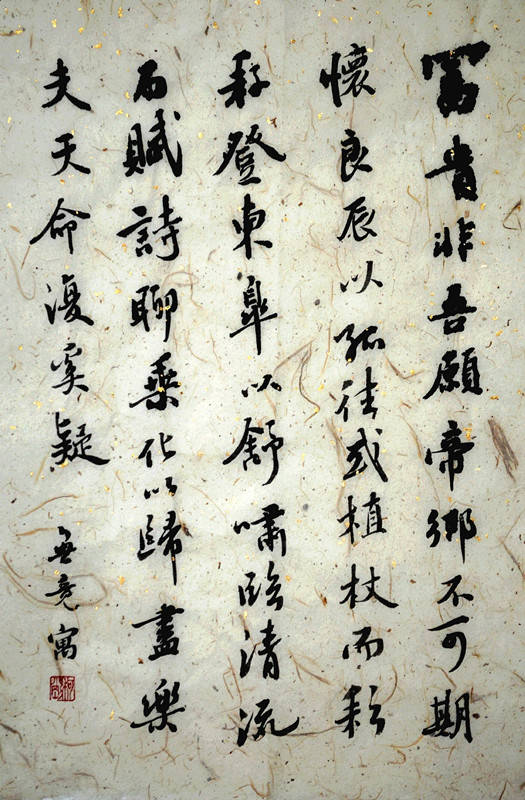 富貴非吾願帝鄉不可期
懷良辰以孤往或植杖而耘
耔登東皋以舒嘯臨清流
而賦詩聊乘化以歸盡樂
夫天命復奚疑
無竟寓